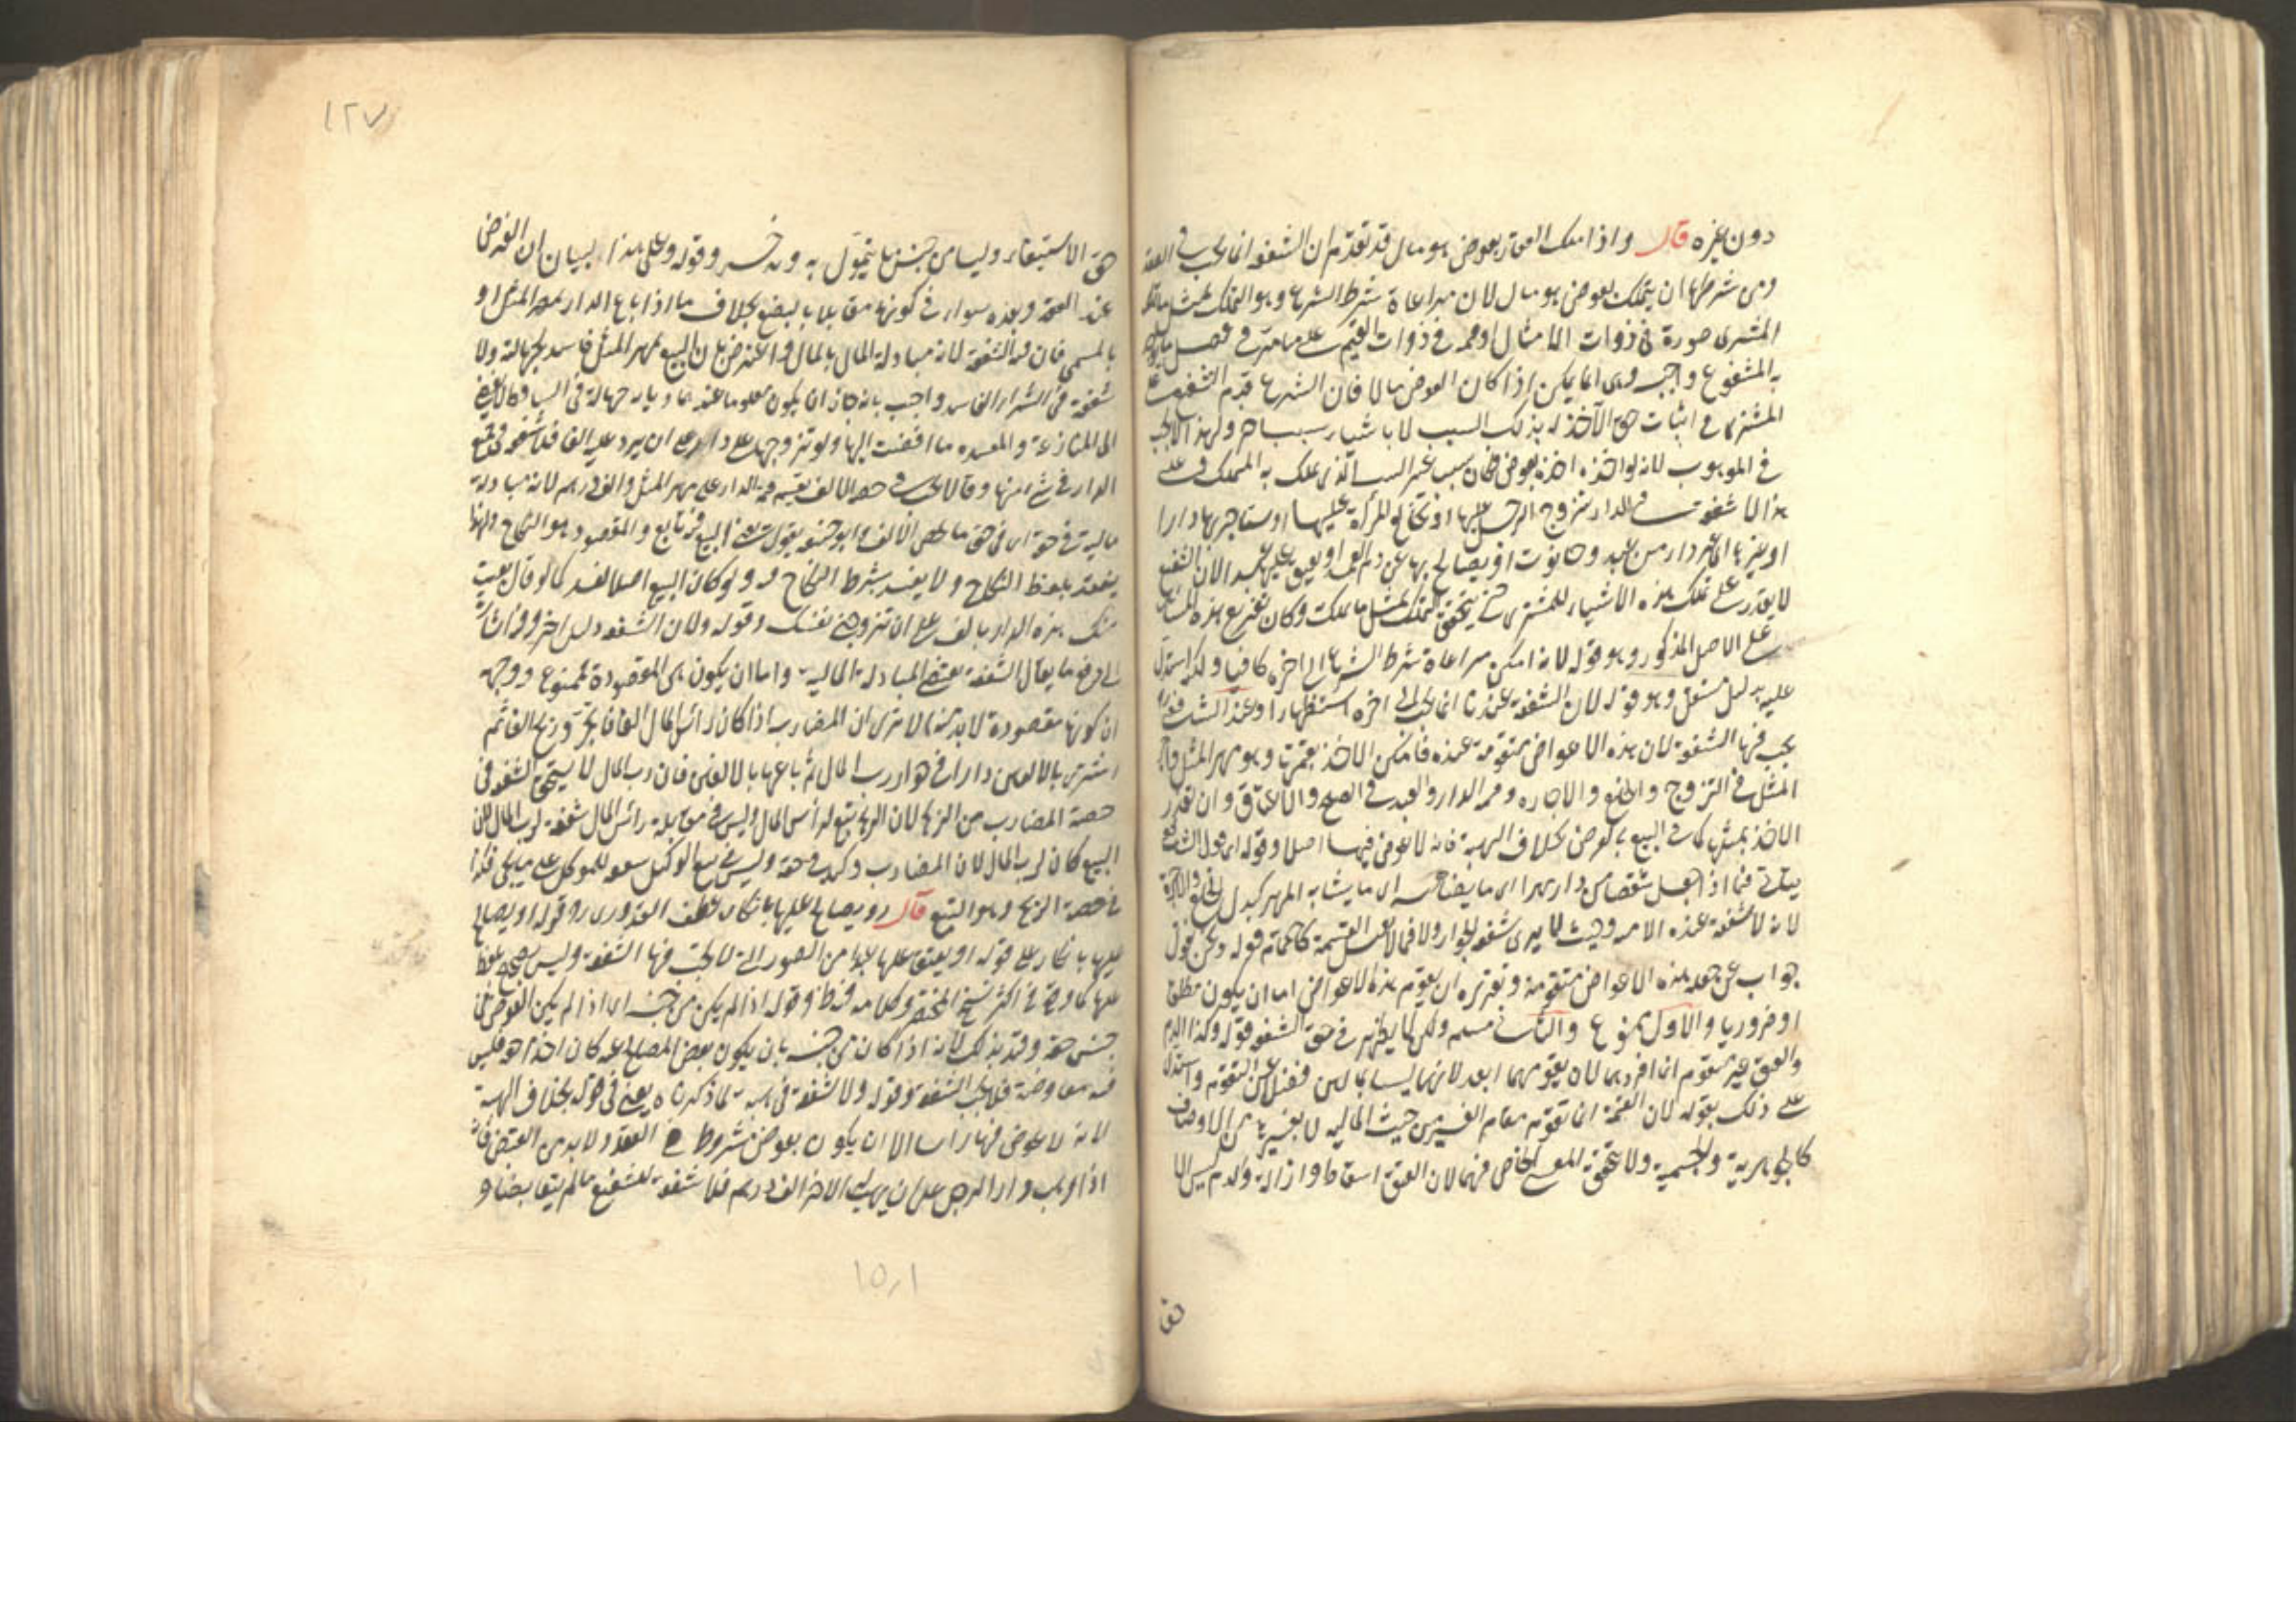 دون غيره قال واذا ملك العقار بعوض هو مال قد تقدم ان الشفعة انما تجب في العقار
ومن شرطها ان يتملك بعوض هو مال لان مراعاة شرط الشرع وهو التملك بمثل ما تملك
المشترى صورة في ذوات الامثال او قيمة في ذوات القيم على ما مر في فصل ما يؤخذ
به المشفوع واجب وهى انما يمكن اذا كان العوض مالا فان الشرع قدم الشفيع على
المشترى في اثبات حق الآخذ له بذلك السبب لا بانشاء سبب آخر ولهذا لا يجب
في الموهوب لانه لو اخذه اخذه بعوض فكان سببا غير السبب الذى ملك به المتملك فعلى
هذا لا شفعة في الدار يتزوج الرجل عليها او تخالع المرأة عليها او يستاجر بها دارا
او غيرها او غير دار من عبد وحانوت او يصالح بها عن دم العمد او يعتق عليها عبدا لان الشفيع
لا يقدر على تملك هذه الاشياء للمشترى حتى يتحقق التملك بمثل ما ملكت وكان تفريع هذه المسائل
على الاصل المذكور وهو قوله لانه امكن مراعاة شرط الشرع الى اخره كافيا ولكن استدل
عليه بدليل مستقل وهو قوله لان الشفعة عندنا انما تجب الى اخره استظهارا وعند الشافعي
يجب فيها الشفعة لان هذه الاعواض متقومة عنده فامكن الاخذ بقيمتها وهو مهر المثل واجر
المثل في التزوج والخلع والاجارة وقيمة الدار والعبد في الصلح والاعتاق وان تعذر
الاخذ بمثلها كما في البيع بالعرض بخلاف الهبة فانه لا عوض فيها اصلا وقوله اى قول الشافعي
يتاتى فيما اذا جعل شقصا من داره مهرا اى ما يضاهيه اى ما يشابه المهر كبدل الخلع والاجرة
لانه لا شفعة عنده الا فيه وحيث لا يرى شفعة الجوار ولا فيما لا يحتمل القسمة كالحمام قوله ونحن نقول
جواب عن جعله هذه الاعواض متقومة وتقريره ان تقوم هذه الاعواض اما ان يكون مطلقا
او ضروريا والاول ممنوع والثانى مسلم ولكن لا يظهر في حق الشفعة قوله وكذا الدم
والعتق غير متقوم انما افردهما لان تقومهما ابعد لانهما ليسا بمالين فضلا عن التقوم واستدل
على ذلك بقوله لان القيمة ما تقوم مقام الغير من حيث المالية لا بغيرها من الاوصاف
كالجوهرية والجسمية ولا يتحقق المعنى الخاص فيهما لان العتق اسقاط وازالة والدم ليس الا
حق
١٢٧
حق الاستيفاء وليسا من جنس ما يتمول به ويدخر وقوله وعلى هذا لبيان ان الفرض
عند العقد وبعده سواء في كونهما مقابلا بالبضع بخلاف ما اذا باع الدار بمهر المثل او
بالمسمى فان فيه الشفعة لانه مبادلة المال بالمال واعترض بان البيع بمهر المثل فاسد لجهالته ولا
شفعة في الشراء الفاسد واجيب بانه جاز ان يكون معلوما عندهما وبانه جهالة في الساقط فلا تفضى
الى المنازعة والمفسدة ما افضت اليها ولو تزوجها على دار على ان يرد عليه الفا فلا شفعة في جميع
الدار في شئ منها وقالا تجب في حصة الالف يقسم قيمة الدار على مهر المثل والف درهم لانه مبادلة
مالية في حقه اى في حق ما يخص الالف وابو حنيفة يقول معنى البيع فيه تابع والمقصود هو النكاح ولهذا
ينعقد بلفظ النكاح ولا يفسد بشرط النكاح فيه ولو كان البيع اصلا لفسد كما لو قال بعت
منك هذه الدار بالف على ان تزوجنى نفسك وقوله ولان الشفعة دليل اخر وفيه اشارة
الى دفع ما يقال الشفعة تقتضى المبادلة المالية واما ان يكون هى المقصودة فممنوع ووجهه
ان كونها مقصودة لابد منه الا ترى ان المضارب اذا كان رأس المال الفا فاتجر وربح الفا ثم
اشترى بالالفين دارا في جوار رب المال ثم باعها بالالفين فان رب المال لا يستحق الشفعة في
حصة المضارب من الربح لان الربح تبع لرأس المال وليس في مقابلة رأس المال شفعة لرب المال لان
البيع كان لرب المال لان المضارب وكيل في حقه وليس في بيع الوكيل شفعة للموكل على ما يجئ فكذا
في حصة الربح وهو التبع قال او يصالح عليها بانكار لفظ القدورى وقوله او يصالح
عليها بانكار على قوله او يعتق عليها عبدا من الصور التى لا تجب فيها الشفعة وليس بصحيح بلفظ
عليها كما وقع في اكثر نسخ المختصر وكلامه فيه ظاهر وقوله اذا لم يكن من جنسه اى اذا لم يكن العوض من
جنس حقه وقيد بذلك لانه اذا كان من جنسه بان يكون بعض المصالح عنه كان اخذا حقه فليس
فيه معاوضة فلا تجب الشفعة وقوله ولا شفعة في هبة لما ذكرناه يعنى في قوله بخلاف الهبة
لانه لا عوض فيها رأسا الا ان يكون بعوض مشروط في العقد ولا بد من القبض فانه
اذا وهب دارا لرجل على ان يهب له الاخر الف درهم فلا شفعة للشفيع ما لم يتقابضا و
١٥٠١